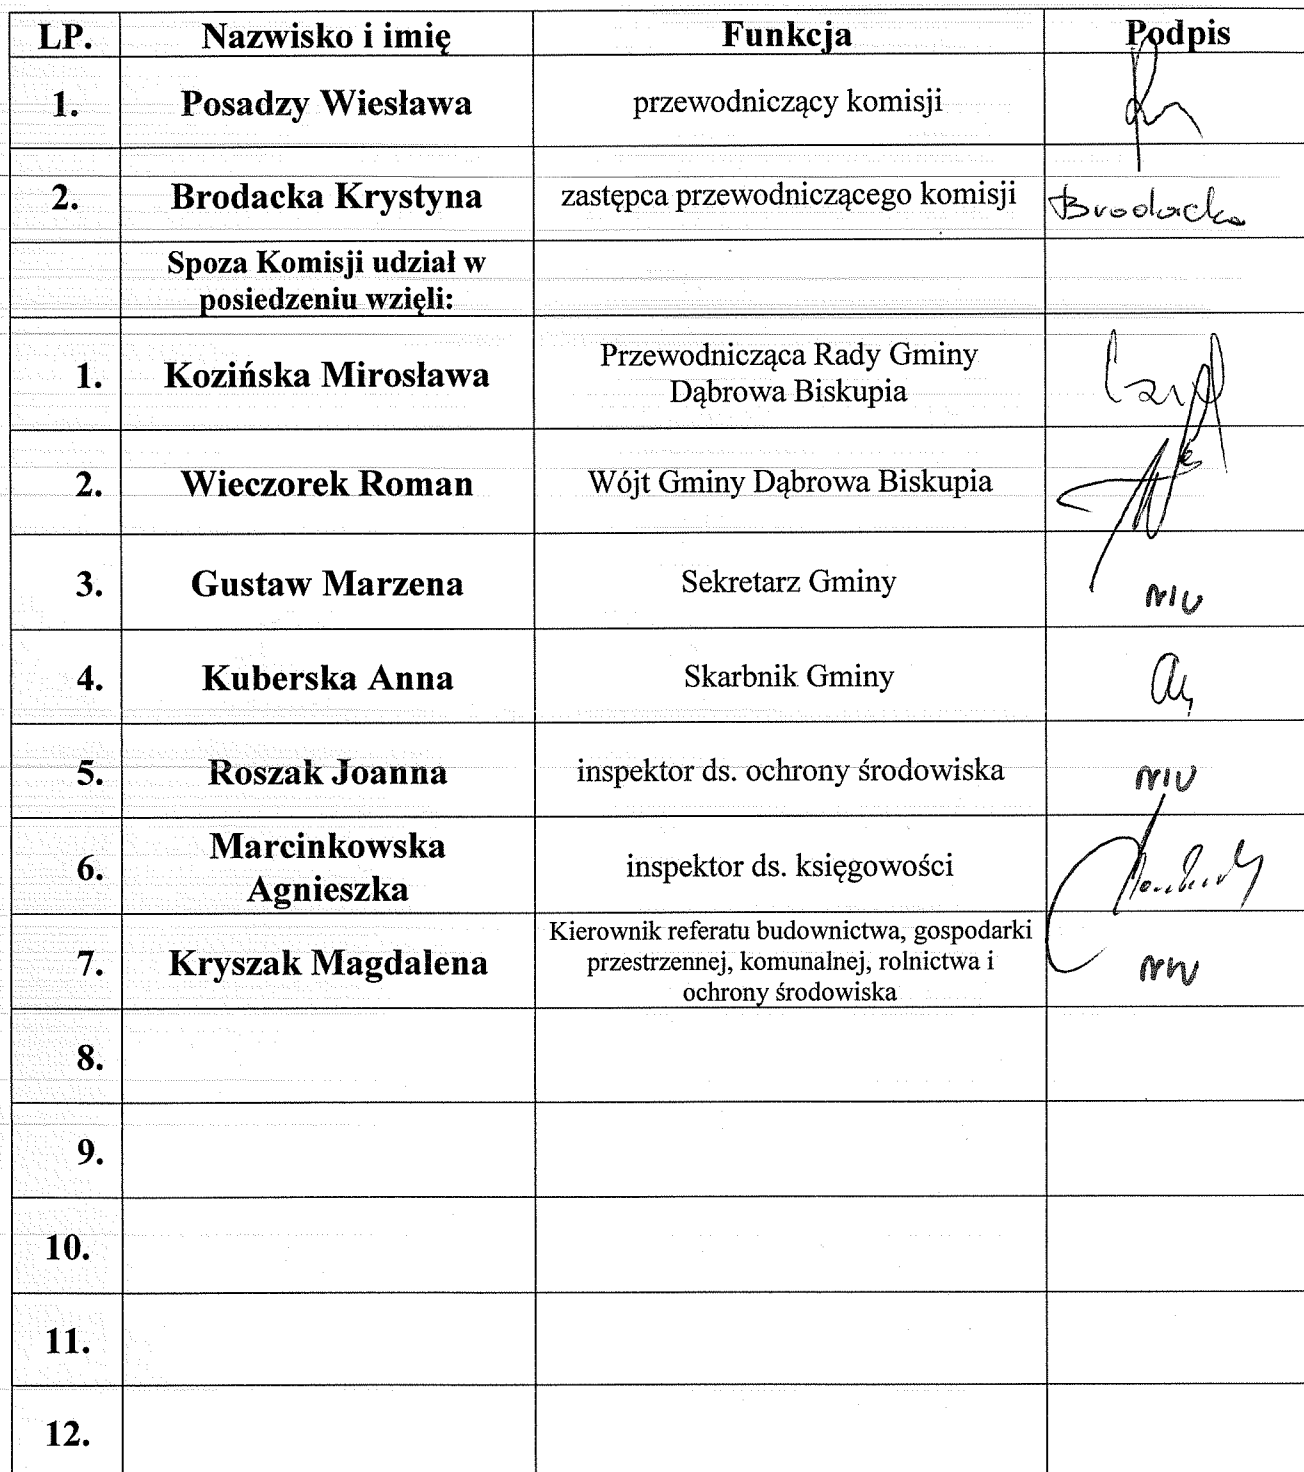 LP. Nazwisko i imię Funkcja Podpis
1. Posadzy Wiesława przewodniczący komisji
2. Brodacka Krystyna zastępca przewodniczącego komisji Brodacka
Spoza Komisji udział w
posiedzeniu wzięli:
1. Kozińska Mirosława Przewodnicząca Rady Gminy
Dąbrowa Biskupia
2. Wieczorek Roman Wójt Gminy Dąbrowa Biskupia
3. Gustaw Marzena Sekretarz Gminy
4. Kuberska Anna Skarbnik Gminy
5. Roszak Joanna inspektor ds. ochrony środowiska
6. Marcinkowska
Agnieszka inspektor ds. księgowości
7. Kryszak Magdalena Kierownik referatu budownictwa, gospodarki
przestrzennej, komunalnej, rolnictwa i
ochrony środowiska
8.
9.
10.
11.
12.